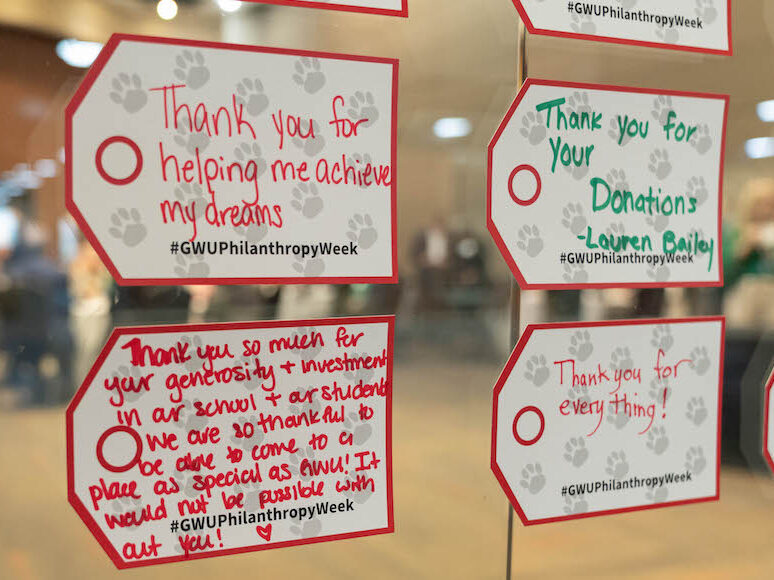 #GWUPhilanthropyWeek
Thank you for
helping me achieve
my dreams
#GWUPhilanthropyWeek
#GWUPhilanthropyWeek
Thank you for
your
Donations
-Lauren Bailey
#GWUPhilanthropyWeek
Thank you so much for
your generosity + investment
in ar school + ar students
we are so thankful to
be able to come to a
place as special as GWU! It
would not be possible with
out you! ♥
#GWUPhilanthropyWeek
Thank you for
everything!
#GWUPhilanthropyWeek